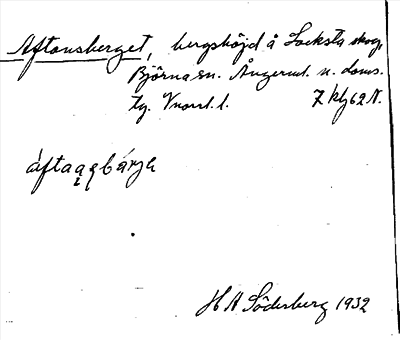 Aftonsberget, bergshöjd å Locksta skog,
Björna sn. Ångerml. n. doms.
tg. Vnorrl. l. 7 kfg 62 N.
áftaąqbárjə
H A Söderberg 1932